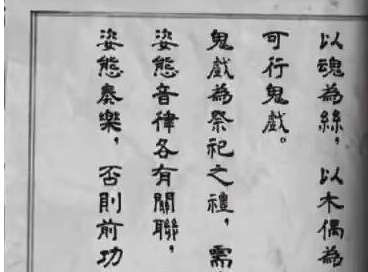 以魂為絲，以木偶為
可行鬼戲。
鬼戲為祭祀之禮，需
姿態音律各有關聯，
姿態奏樂，否則前功